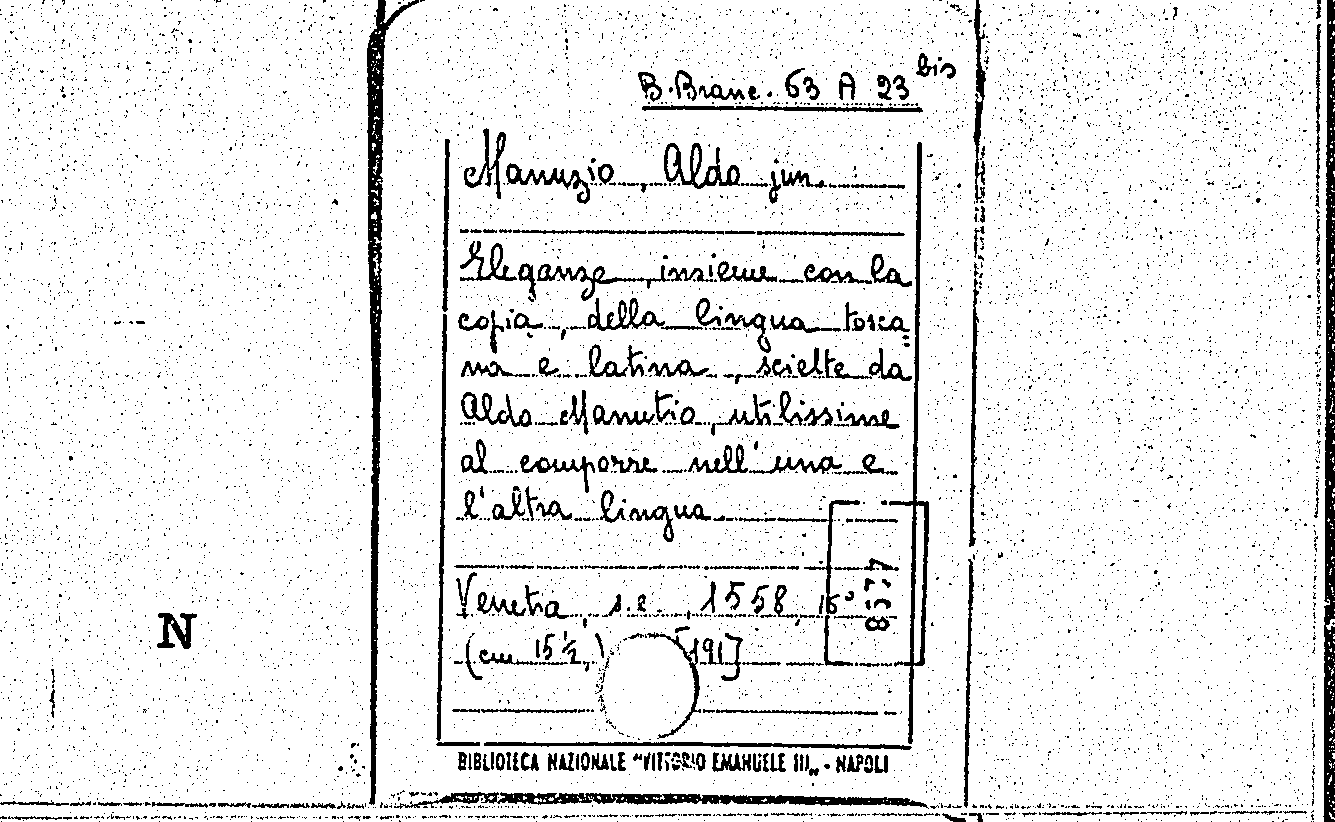 B. Branc. 63 A 23 bis
Manuzio, Aldo jun.
Eleganze, insieme con la
copia, della lingua tosca
na e latina, scielte da
Aldo Manutio, utilissime
al comporre nell'una e
l'altra lingua
Venetia, s.e., 1558, 16°
(cm 15½,) [191]
8577
N
BIBLIOTECA NAZIONALE "VITTORIO EMANUELE III„ - NAPOLI